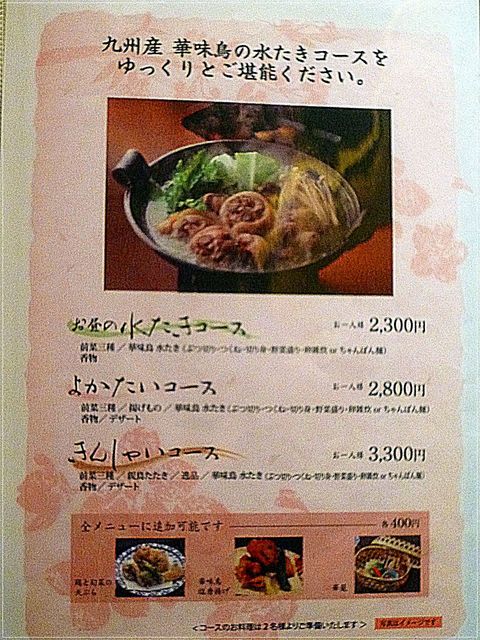 九州産 華味鳥の水たきコースを
ゆっくりとご堪能ください。
お昼の水たきコース お一人様 2,300円
前菜三種／華味鳥 水たき（ぶつ切り・つくね・切り身・野菜盛り・卵雑炊 or ちゃんぽん麺）
香物
よかたいコース お一人様 2,800円
前菜三種／揚げもの／華味鳥 水たき（ぶつ切り・つくね・切り身・野菜盛り・卵雑炊 or ちゃんぽん麺）
香物／デザート
きんしゃいコース お一人様 3,300円
前菜三種／親鳥たたき／逸品／華味鳥 水たき（ぶつ切り・つくね・切り身・野菜盛り・卵雑炊 or ちゃんぽん麺）
香物／デザート
全メニューに追加可能です 各400円
鶏と旬菜の
天ぷら
華味鳥
塩唐揚げ
華籠
<コースのお料理は2名様よりご準備いたします>
写真はイメージです